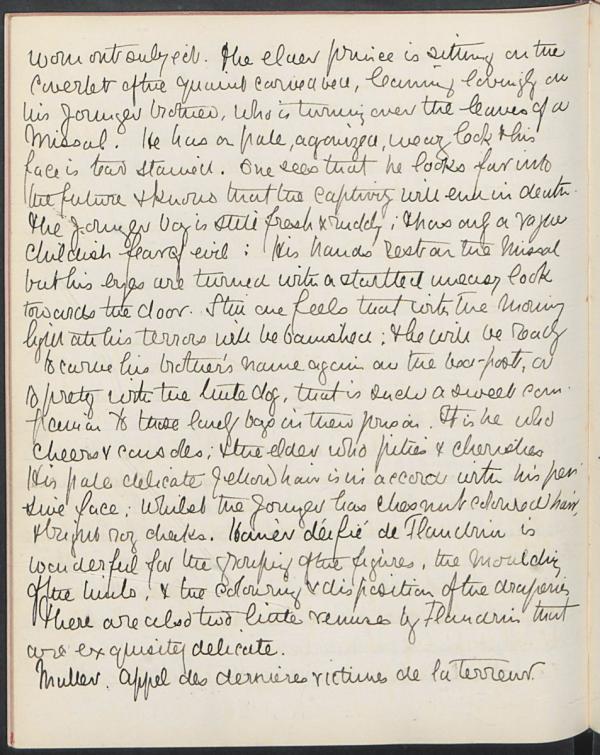 worn out subject. The elder prince is sitting on the
coverlet of the quaint carved bed, leaning lovingly on
his younger brother, who is turning over the leaves of a
Missal. He has a pale, agonized, weary look & his
face is tear stained. One sees that he looks far into
the future & knows that the captivity will end in death.
The younger boy is still fresh & ruddy; & has only a vague
childish fear of evil: His hands rest on the Missal
but his eyes are turned with a startled uneasy look
towards the door. Still one feels that with the morning
light all his terrors will be banished; & he will be ready
to carve his brother's name again on the bed-post, or
to play with the little dog, that is such a sweet com-
panion to these lonely boys in their prison. It is he who
cheers & consoles; & the elder who pities & cherishes
His pale delicate yellow hair is in accord with his pen-
sive face; whilst the younger has chesnut coloured hair,
& bright rosy cheeks. déifié de Flandrin is
wonderful for the grouping of the figures, the moulding
of the limbs; & the colouring & disposition of the draperies
There are also two little venuses by Flandrin that
are exquisitely delicate.
Muller. Appel des dernières victimes de la terreur.